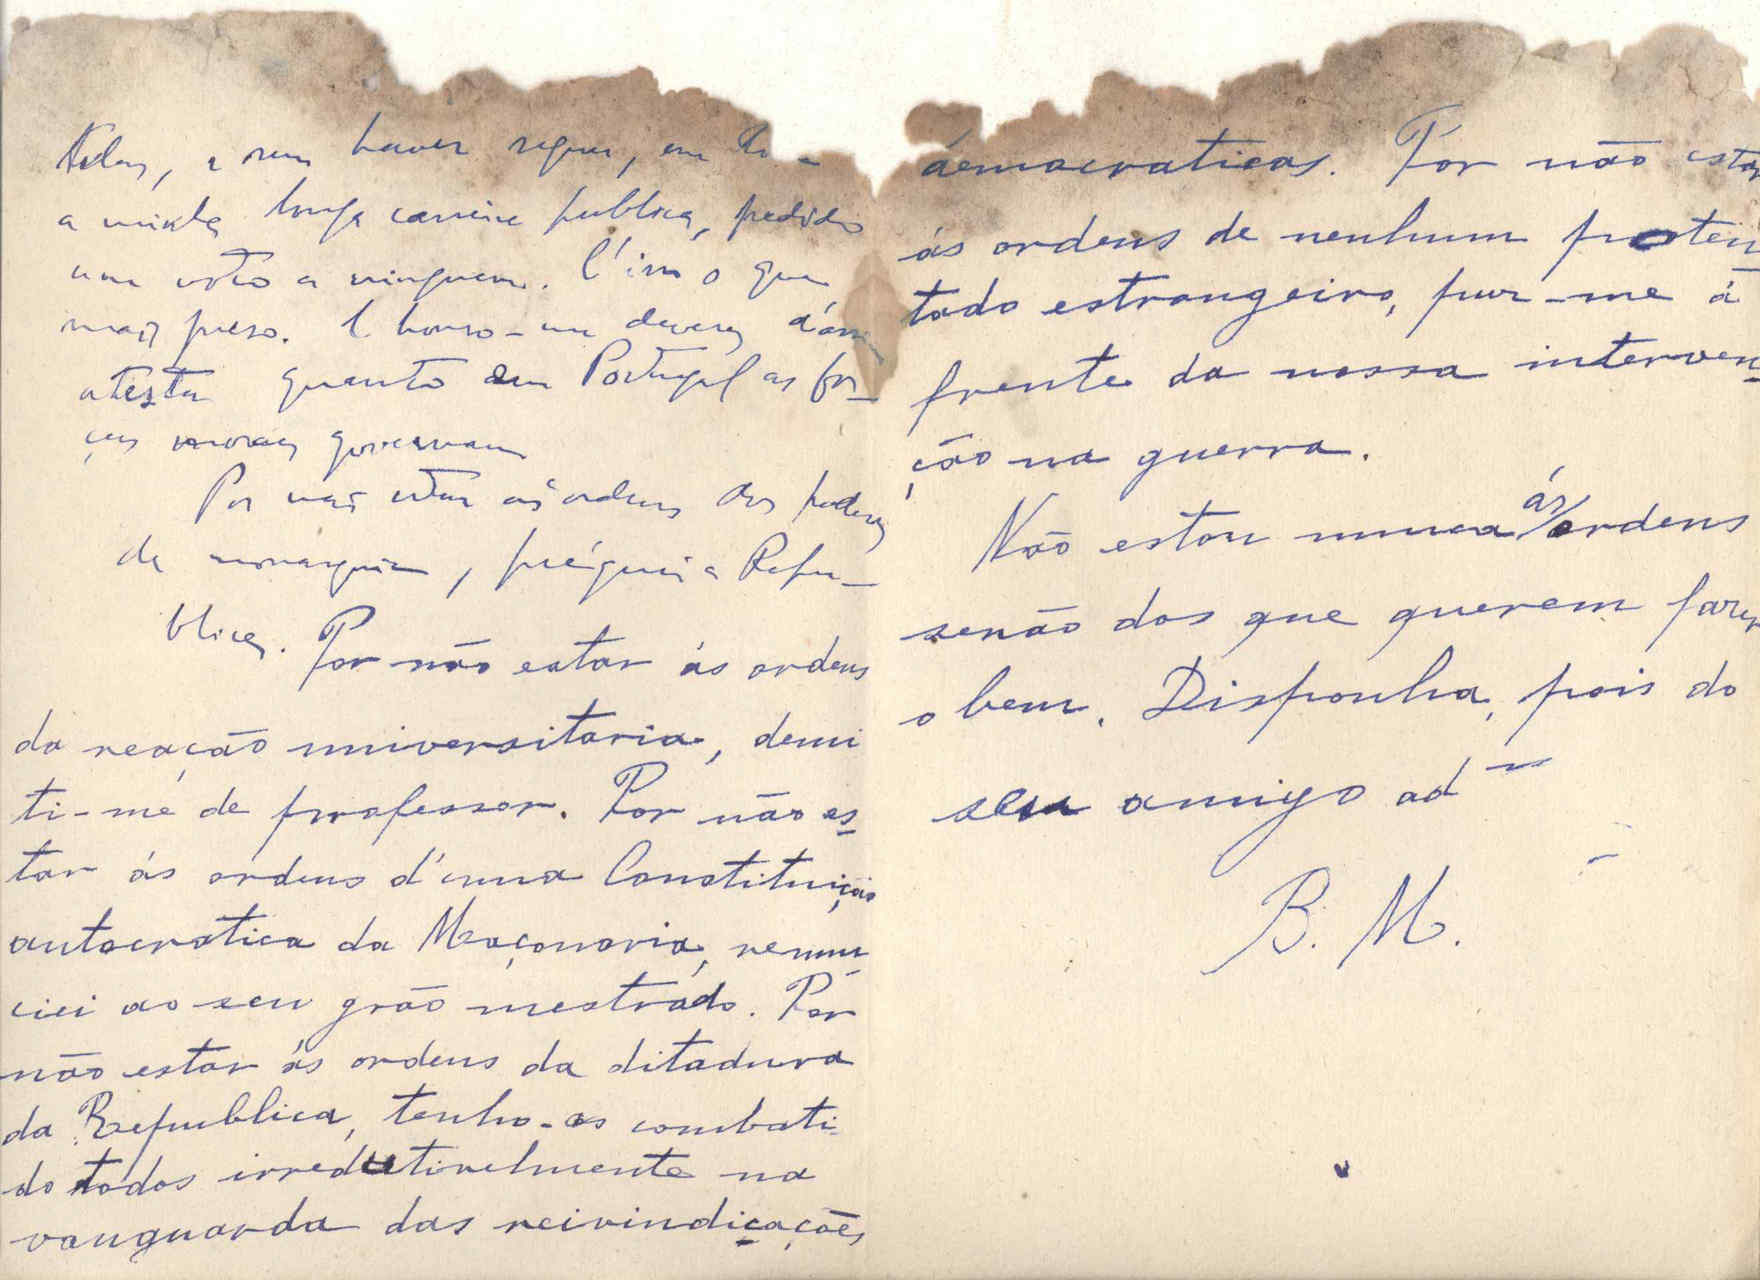 e sem haver sequer, em
a minha longa carreira publica, pedido
um voto a ninguem. É isso o que
mais preso. E honro-me
atesta quanto em Portugal as for-
ças moraes governam
Por não estar ás ordens dos poderes
da monarquia, préguei a Repu-
blica. Por não estar ás ordens
da reação universitaria, demi
ti-me de professor. Por não es-
tar ás ordens d'uma Constituição
autocratica da Maçonaria, renun-
ciei ao seu grão mestrado. Por
não estar ás ordens da ditadura
da Republica, tenho-as combati-
do todas irredutivelmente na
vanguarda das reivindicações
democraticas. Por não estar
ás ordens de nenhum poten
tado estrangeiro, puz-me á
frente da nossa interven-
ção na guerra.
Não estou nunca ás ordens
senão dos que querem fazer
o bem. Disponha, pois do
seu amigo ad
B. M.